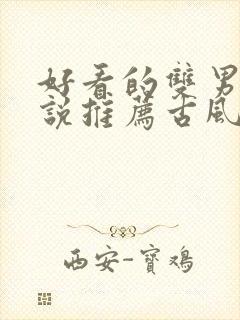 好看的雙男
說推薦古風
西安-寶鴻